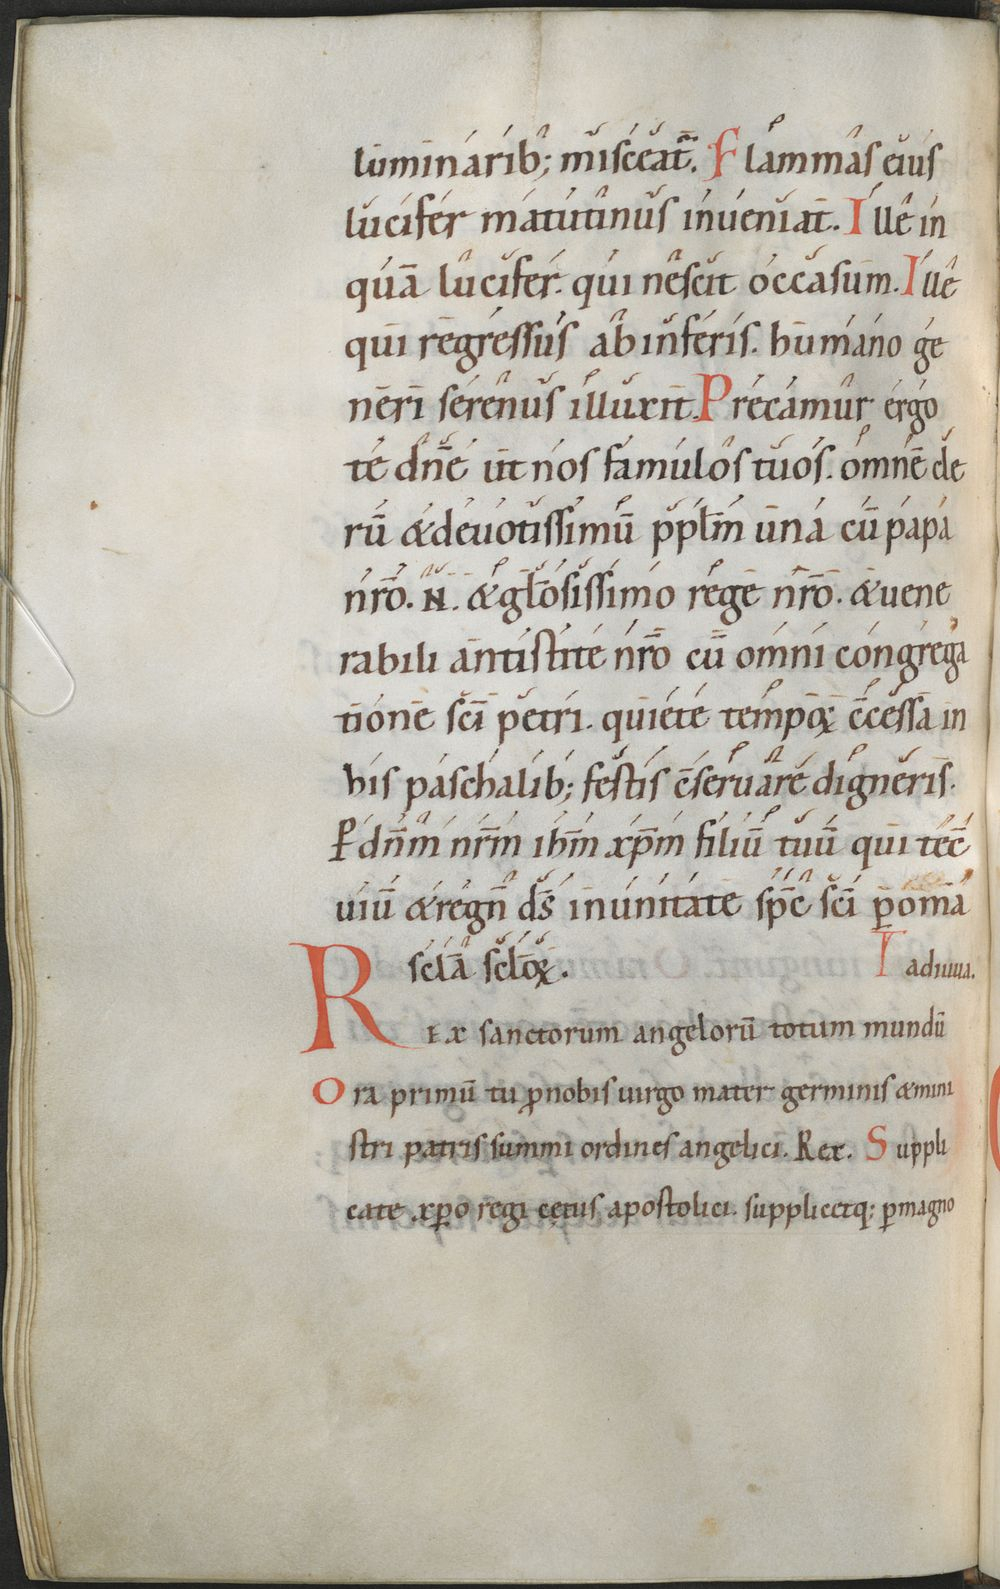 luminarib; misceat̄. Flammas eius
lucifer matutinus inueniat. Ille in
quā lucifer. qui nescit occasum. Ille
qui regressus ab inferis. humano ge
neri serenus illuxit. Precamur ergo
te dn̄e ut nos famulos tuos. omnē cle
rū & deuotissimū pplm̄ una cū papa
nr̄o. N. & gl̄osissimo rege nr̄o. & uene
rabili antistite nr̄o cū omni congrega
tione sc̄i petri. quiete tempoꝝ c̄cessa in
his paschalib; festis c̄seruare digneris.
P dn̄m nr̄m ihm̄ xp̄m filiū tuū qui tec̄
uiū & regn̄ ds̄ in unitate sp̄c sc̄i p̄ om̄a
scl̄a scl̄oꝝ. I adiuua.
Rex sanctorum angelorū totum mundū
Ora primū tu ꝓ nobis uirgo mater germinis & mini
stri patris summi ordines angelici. Rex. Suppli
cate xp̄o regi cętus apostolici. supplicetq; ꝑmagno